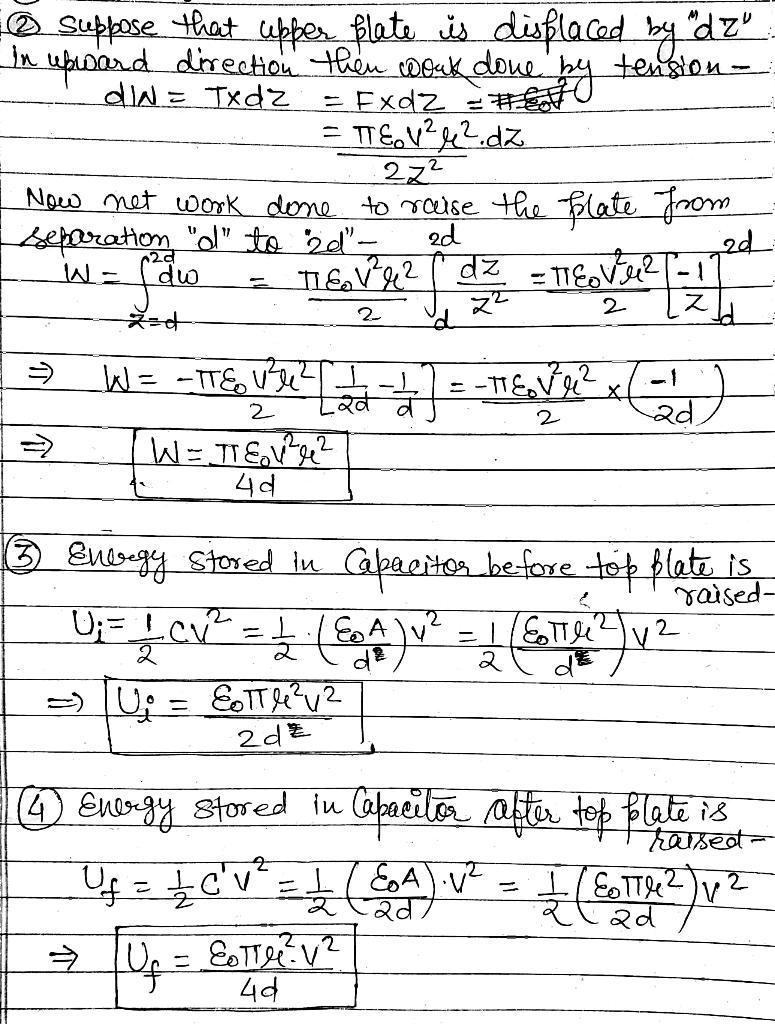 ② Suppose that upper plate is displaced by "dz"
in upward direction then work done by tension -
dW = T×dz = F×dz =
= πε₀V²r².dz / 2z²
Now net work done to raise the plate from
separation "d" to "2d" -
W = ∫_{z=d}^{2d} dw = πε₀V²r²/2 ∫_d^{2d} dz/z² = πε₀V²r²/2 [-1/z]_d^{2d}
⇒ W = -πε₀V²r²/2 [1/2d - 1/d] = -πε₀V²r²/2 × (-1/2d)
⇒ W = πε₀V²r²/4d
③ Energy stored in Capacitor before top plate is
raised-
Ui = 1/2 CV² = 1/2 . (ε₀A/d) V² = 1/2 (ε₀πr²/d) V²
⇒ Ui = ε₀πr²V²/2d
④ Energy stored in Capacitor after top plate is
raised-
Uf = 1/2 C'V² = 1/2 (ε₀A/2d).V² = 1/2 (ε₀πr²/2d) V²
⇒ Uf = ε₀πr².V²/4d